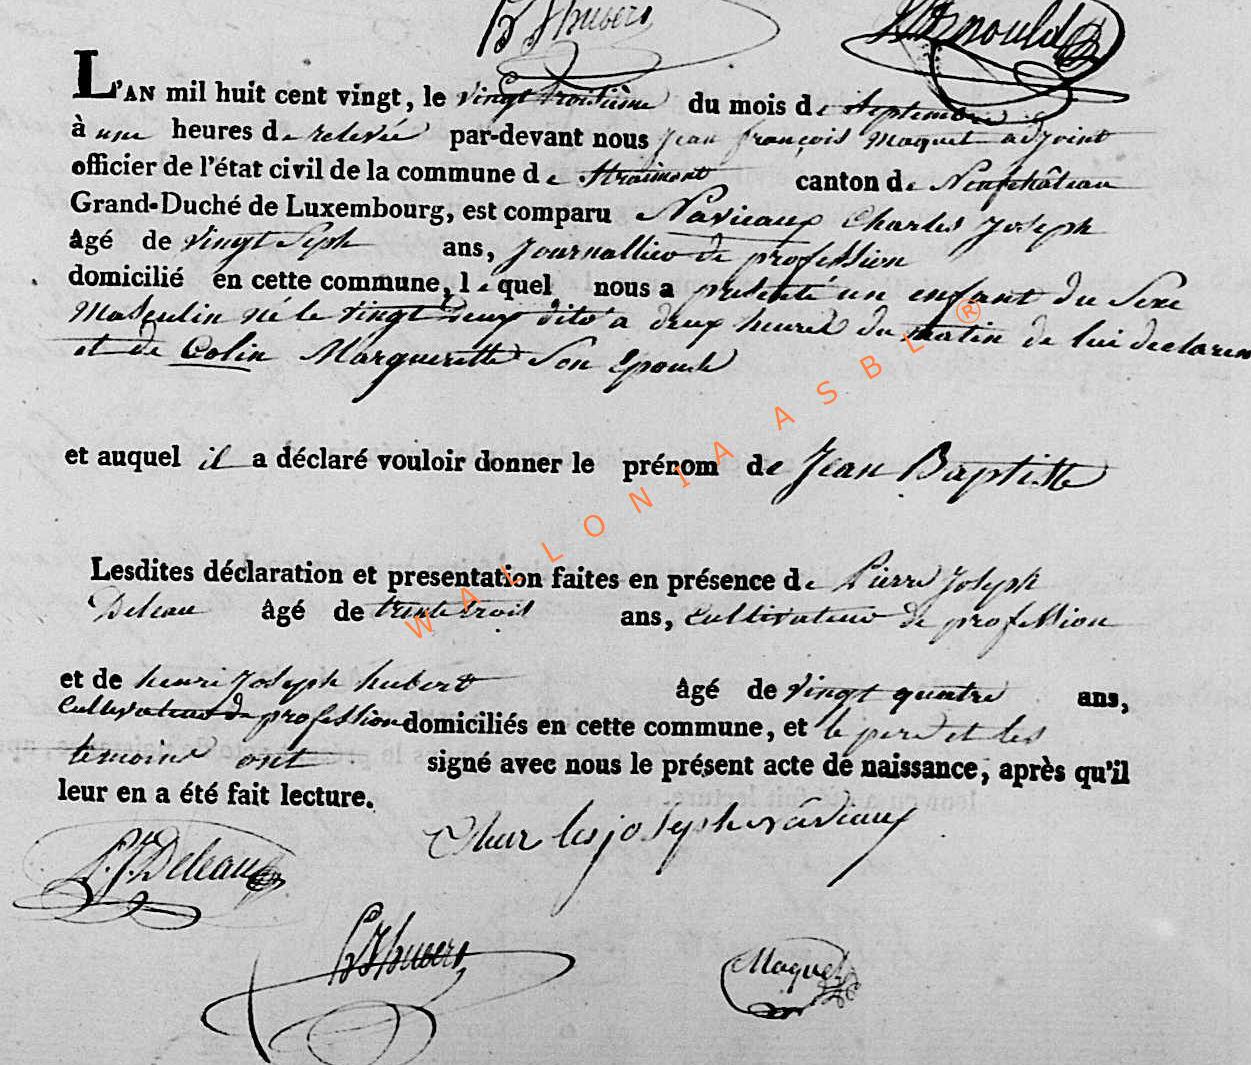 H J hubert
Arnould
L'AN mil huit cent vingt, le vingt troisième du mois de Septembre
à une heures de relevée par-devant nous jean françois Maquet adjoint
officier de l'état civil de la commune de Straimont canton de Neufchâteau
Grand-Duché de Luxembourg, est comparu Navieaux Charles Joseph
âgé de vingt Sept ans, Journallier de profession
domicilié en cette commune, lequel nous a presenté un enfant du Sexe
Masculin né le vingt deux dito a deux heures du matin de lui declarent
et de Colin Marguerette Son Epouse
et auquel il a déclaré vouloir donner le prénom de Jean Baptiste
Lesdites déclaration et presentation faites en présence de Pierre Joseph
Deleau âgé de trente trois ans, cultivateur de profession
et de henri Joseph hubert âgé de vingt quatre ans,
Cultivateur de profession domiciliés en cette commune, et le pere et les
temoins ont signé avec nous le présent acte de naissance, après qu'il
leur en a été fait lecture.
Charles joseph navieaux
P. J. Deleau
H J hubert
Maquet
WALLONIA ASBL ®